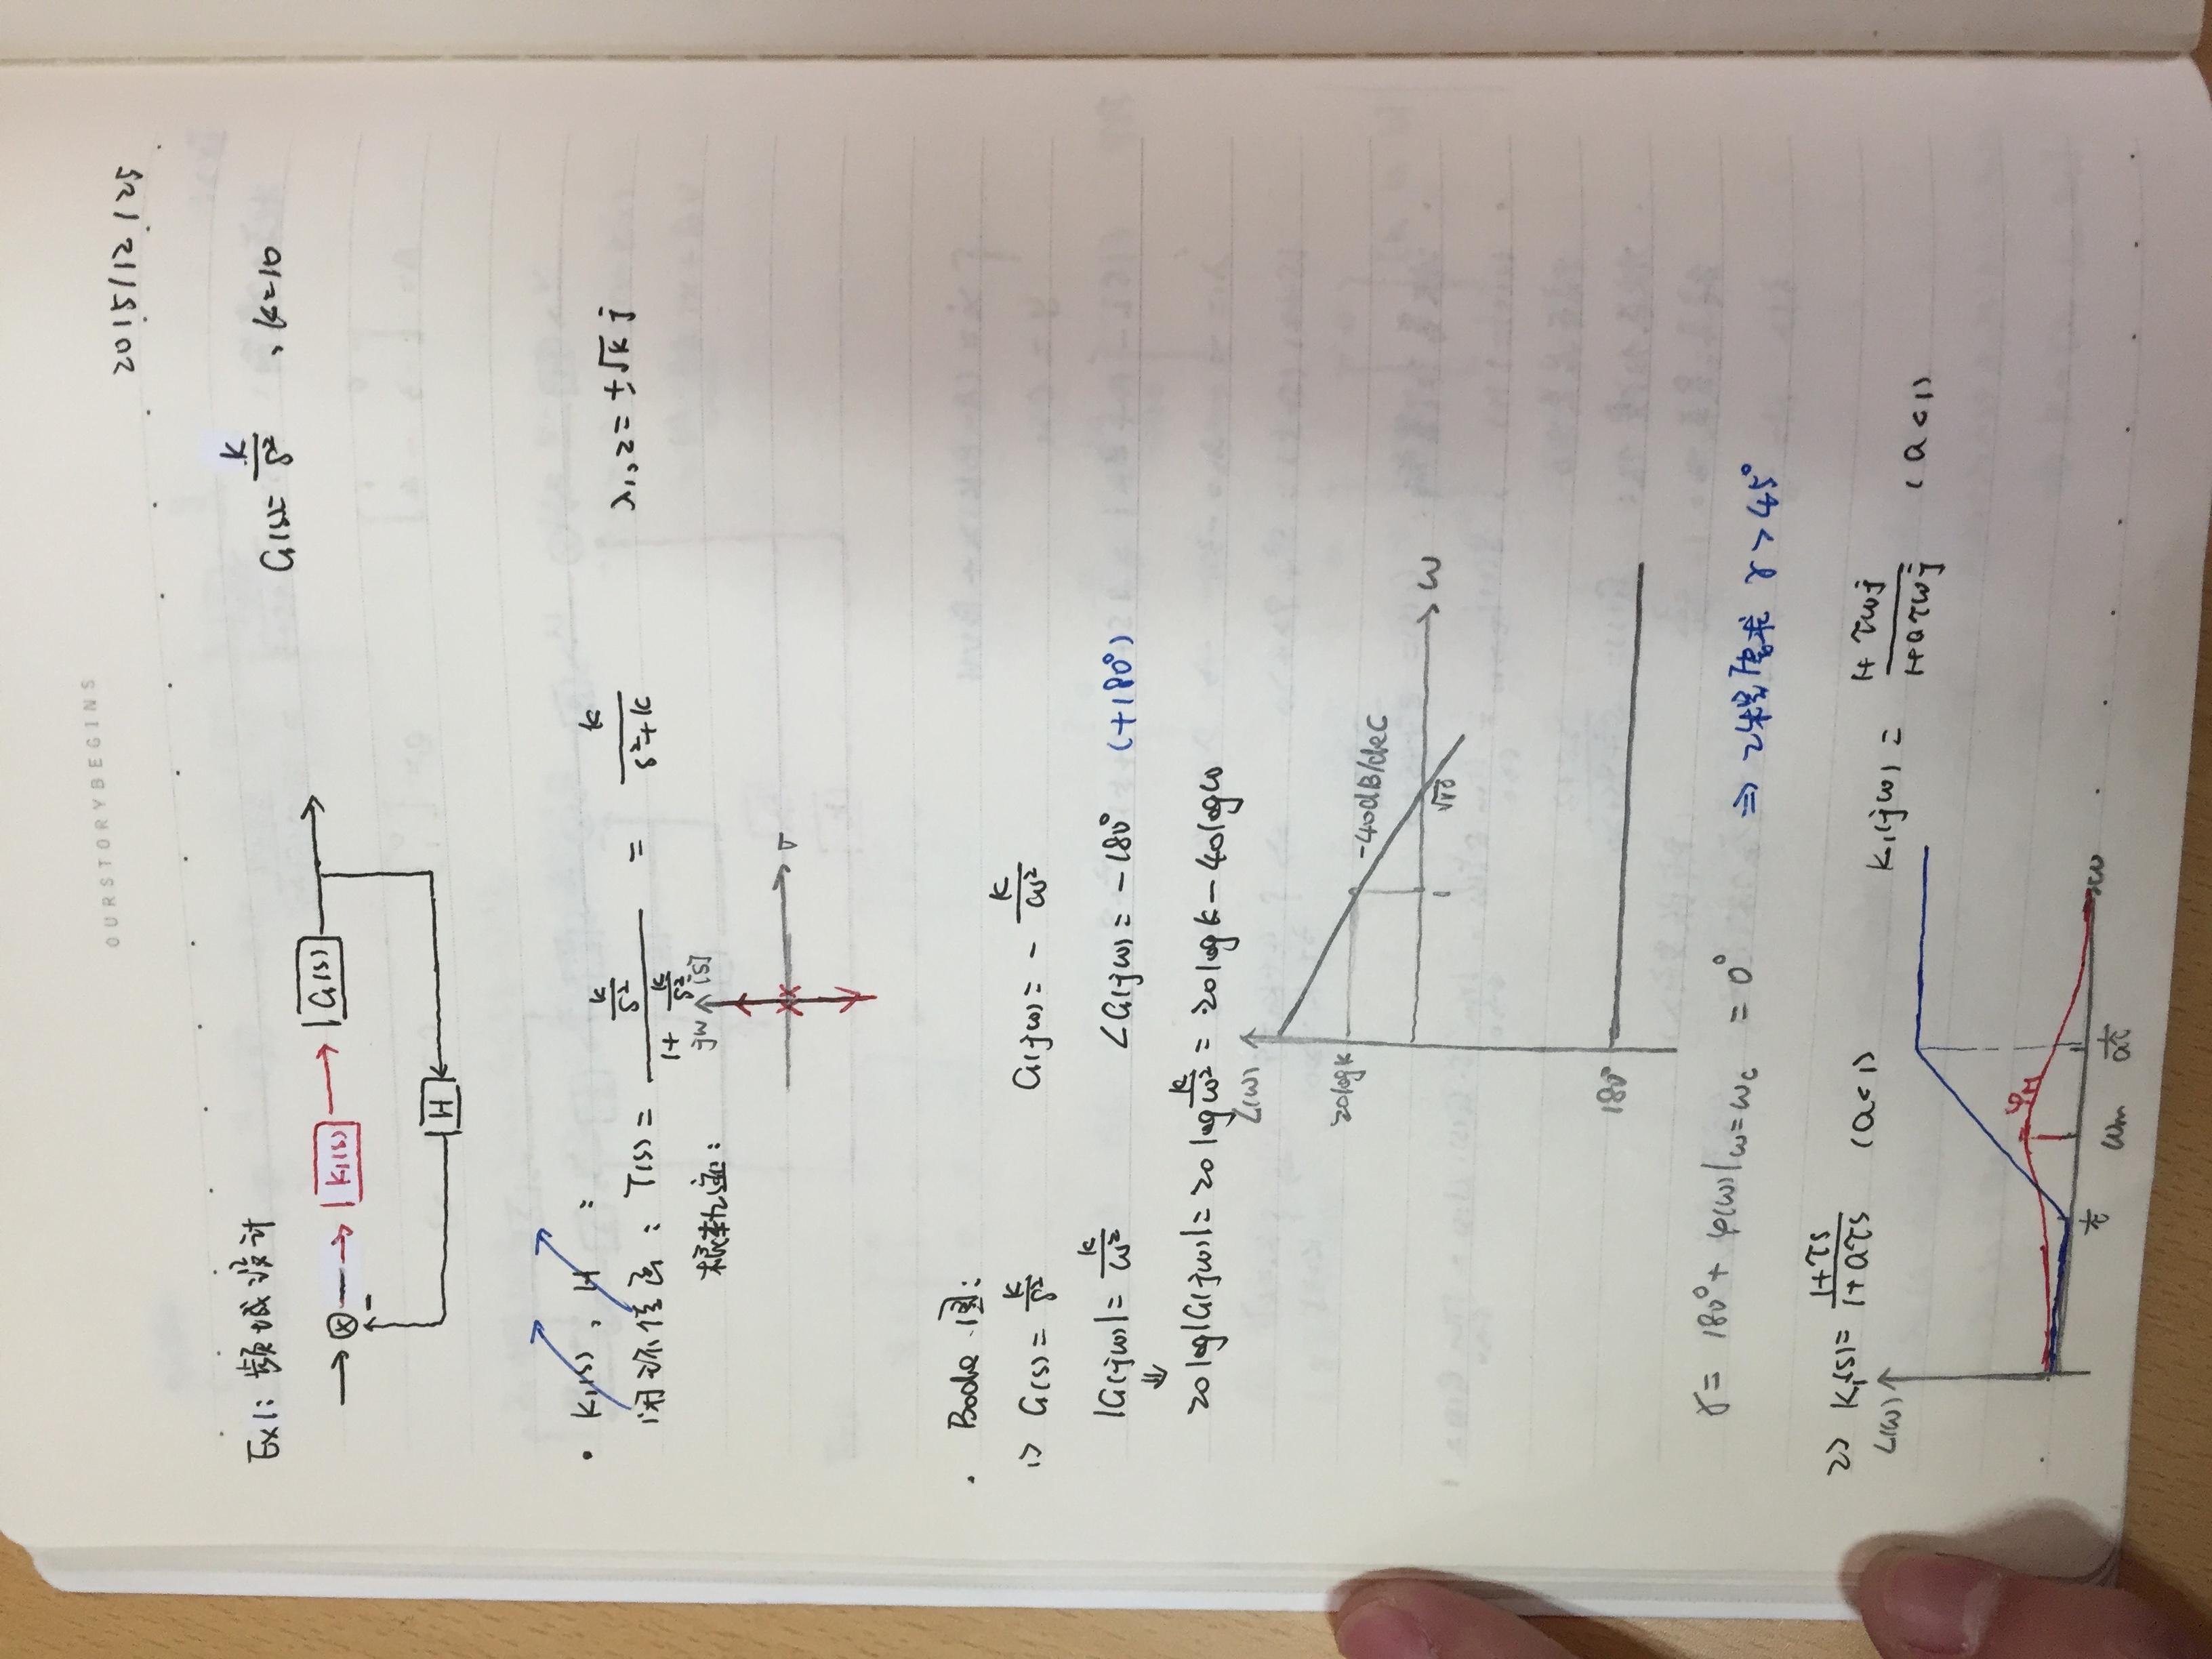 OURSTORYBEGINS
2015/12/25
Ex1: 频域设计
G(s)= K/s² , K=10
K₁(s)
G(s)
-
H
· K₁(s) , H :
闭环传函: T(s) = (K/s²)/(1+ K/s²) = K/(s²+K) λ₁,₂= ±√K j
根轨迹:
jw [S]
σ
· Bode 图:
1> G(s) = K/s² G(jω) = - K/ω²
|G(jω)| = K/ω² ∠G(jω) = -180° (+180°)
⇓
20log|G(jω)| = 20 log K/ω² = 20logK - 40logω
L(ω)
20logK
-40dB/dec
1 √10 ω
180°
γ = 180° + φ(ω)|ω=ωc = 0° ⇒ 工程需求 γ > 45°
2> K₁(s) = (1+τs)/(1+aτs) (a<1) K₁(jω) = (1+τωj)/(1+aτωj) (a<1)
L(ω)
φM
1/τ ωm 1/aτ ω